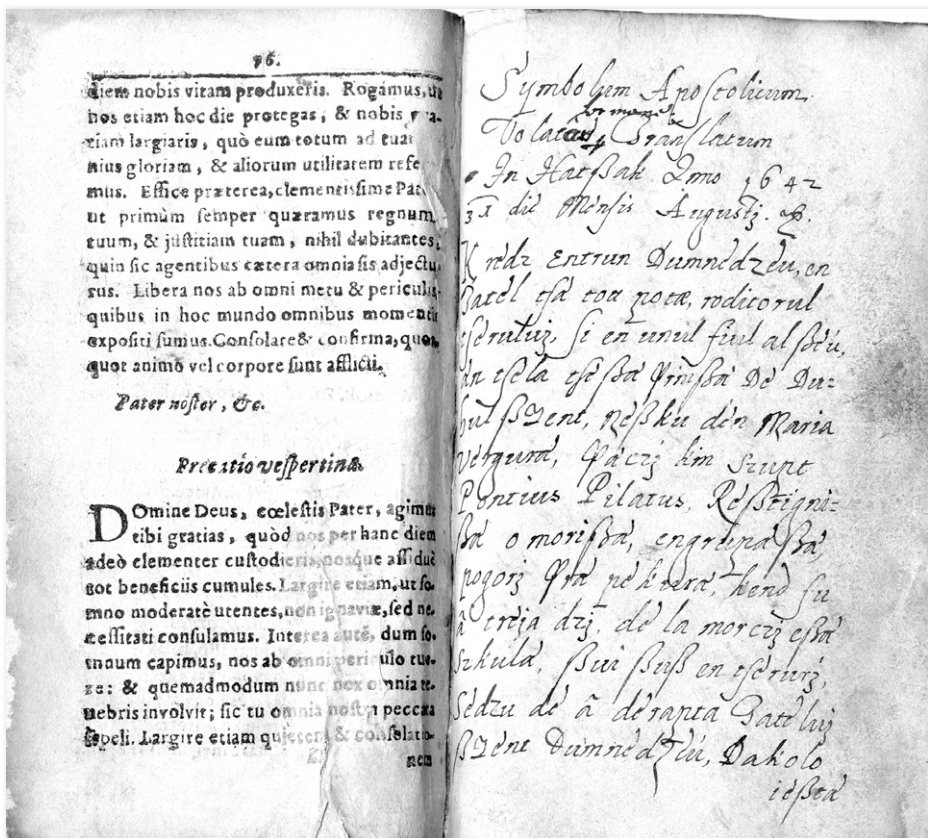 76.
diem nobis vitam produxeris. Rogámus, ut
hos etiam hoc die protegas, & nobis gra-
tiam largiaris, quò eum totum ad tuai
nius gloriam, & aliorum utilitatem refe
mus. Effice præterea, clementissime Pat
ut primùm semper quæramus regnum
tuum, & justitiam tuam, nihil dubitantes,
quin sic agentibus cætera omnia sis adjectu-
rus. Libera nos ab omni metu & periculis
quibus in hoc mundo omnibus momentis
expositi sumus. Consolare & confirma, quot
quot animo vel corpore sunt afflicti.
Pater noster, &c.
Precatio vespertina.
DOmine Deus, cœlestis Pater, agimus
tibi gratias, quòd nos per hanc diem
adeò clementer custodieris, nosque assiduè
tot beneficiis cumules. Largire etiam, ut so-
mno moderatè utentes, non ignaviæ, sed ne-
cessitati consulamus. Interea autē, dum so-
mnum capimus, nos ab omni periculo tue-
re: & quemadmodum nunc nox omnia te-
nebris involvit; sic tu omnia nostra peccata
sepeli. Largire etiam quietem & consolatio-
nem
Symbolum Apostolicum
Translatum
In Hatßak Anno 1642
31 die Mensis Augustj.
Kredz Entrun Dumnedzeu, en
Tatel tsa toa potæ, roditorul
tseruluj, si en unul fiul al ßeu,
án tse la tse ßa Prinßa De Du-
hul ßzent, Neßku den Maria
Vergura, Pacij kin szunt
Pontius Pilatus, Reßtigni-
ßa o morißa, engrupa ßa,
pogorj Pra pekurà, kend fu
ã treja dzj, de la morczj eßa
szkula, ßui ßuß en tserurj,
Sedzu de ã derapta Tatëluj
ßzent Dumnedzeu, Dakolo
ießta